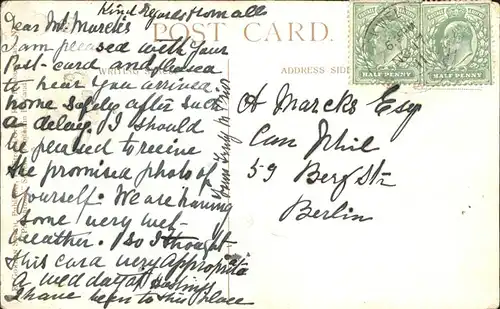 Kind Regards from all
POST CARD.
WRITING
ADDRESS SIDE
HALF PENNY
HALF PENNY
Dear Mr. Marcks
I am pleased with your
Post-card and pleased
to hear you arrived
home safely after such
a delay. I should
be pleased to receive
the promised photo of
yourself. We are having
some very wet
weather. I so I thought
this card very appropriate
A wet day at Hastings
I have been to this Place
Yours Truly
A Marcks Esq
59 Berg Str
Berlin